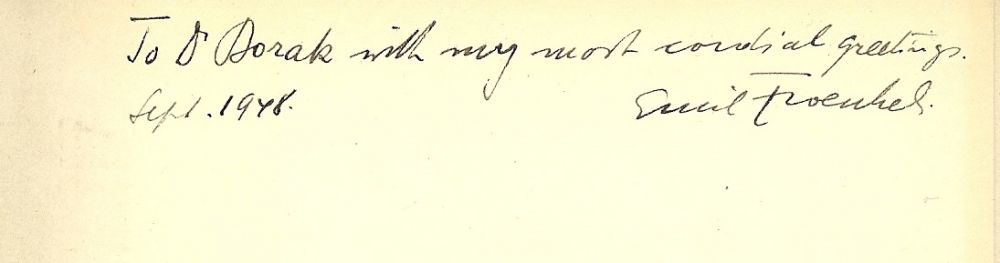 To Dr Borak with my most cordial greetings.
Sept. 1948. Emil Froeschels.